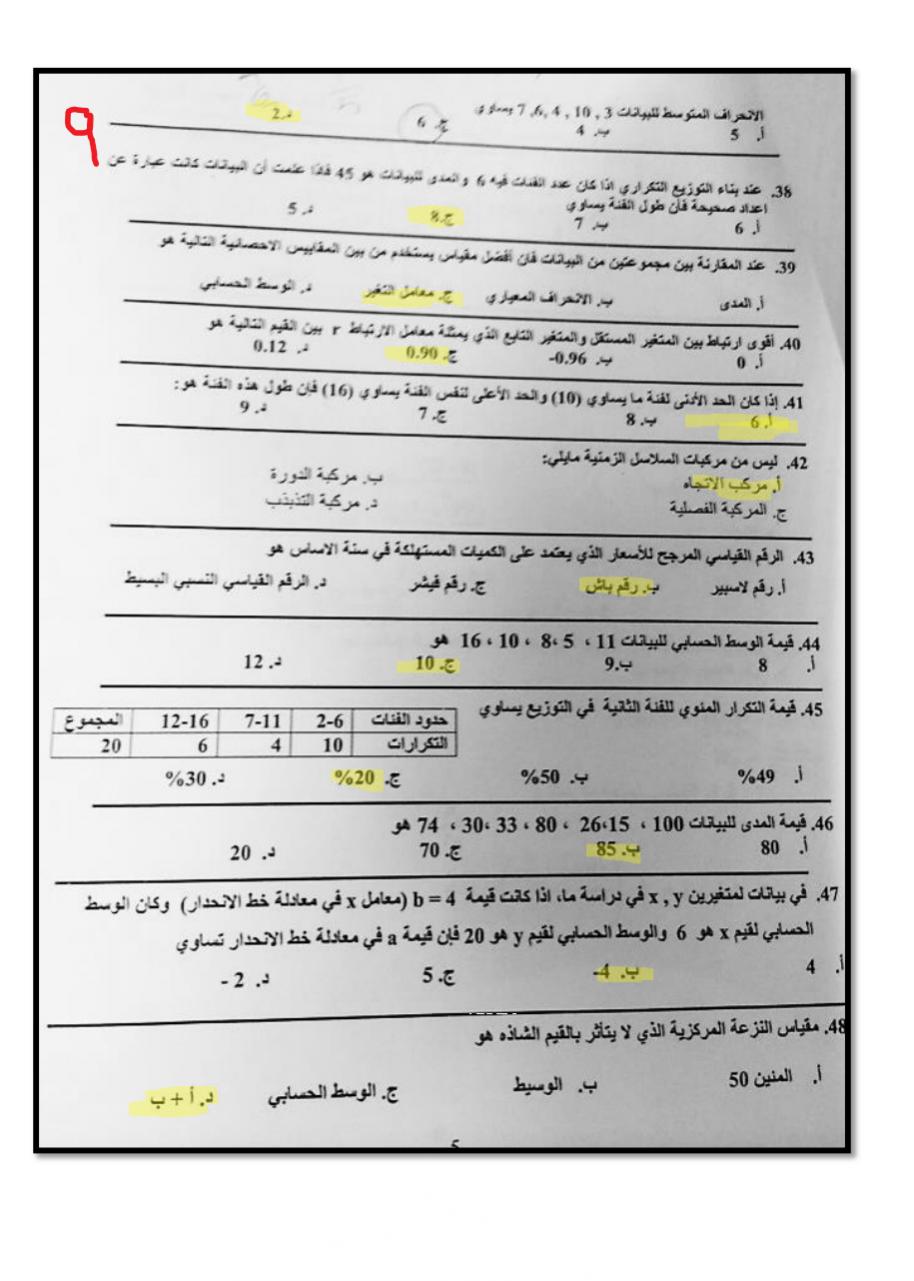 9
الانحراف المتوسط للبيانات 3 , 10 , 4 ,6, 7 يساوي
أ. 5 ب. 4 ج. 6 د. 2
38. عند بناء التوزيع التكراري اذا كان عدد الفئات فيه 6 والمدى للبيانات هو 45 فاذا علمت أن البيانات كانت عبارة عن
اعداد صحيحة فأن طول الفئة يساوي
أ. 6 ب. 7 ج. 8 د. 5
39. عند المقارنة بين مجموعتين من البيانات فان أفضل مقياس يستخدم من بين المقاييس الاحصائية التالية هو
أ. المدى ب. الانحراف المعياري ج. معامل التغير د. الوسط الحسابي
40. أقوى ارتباط بين المتغير المستقل والمتغير التابع الذي يمثلة معامل الارتباط r بين القيم التالية هو
أ. 0 ب. 0.96- ج. 0.90 د. 0.12
41. إذا كان الحد الأدنى لفئة ما يساوي (10) والحد الأعلى لنفس الفئة يساوي (16) فإن طول هذه الفئة هو:
أ. 6 ب. 8 ج. 7 د. 9
42. ليس من مركبات السلاسل الزمنية مايلي:
أ. مركب الاتجاه ب. مركبة الدورة
ج. المركبة الفصلية د. مركبة التذبذب
43. الرقم القياسي المرجح للأسعار الذي يعتمد على الكميات المستهلكة في سنة الاساس هو
أ. رقم لاسبير ب. رقم باش ج. رقم فيشر د. الرقم القياسي النسبي البسيط
44. قيمة الوسط الحسابي للبيانات 11 ، 5 ،8 ، 10 ، 16 هو
أ. 8 ب. 9 ج. 10 د. 12
45. قيمة التكرار المئوي للفئة الثانية في التوزيع يساوي
حدود الفئات 2-6 7-11 12-16 المجموع
التكرارات 10 4 6 20
أ. 49% ب. 50% ج. 20% د. 30%
46. قيمة المدى للبيانات 100 ، 15،26 ، 80 ، 33 ،30 ، 74 هو
أ. 80 ب. 85 ج. 70 د. 20
47. في بيانات لمتغيرين x , y في دراسة ما، اذا كانت قيمة b = 4 (معامل x في معادلة خط الانحدار) وكان الوسط
الحسابي لقيم x هو 6 والوسط الحسابي لقيم y هو 20 فإن قيمة a في معادلة خط الانحدار تساوي
أ. 4 ب. 4- ج. 5 د. 2 -
48. مقياس النزعة المركزية الذي لا يتأثر بالقيم الشاذه هو
أ. المئين 50 ب. الوسيط ج. الوسط الحسابي د. أ + ب
5